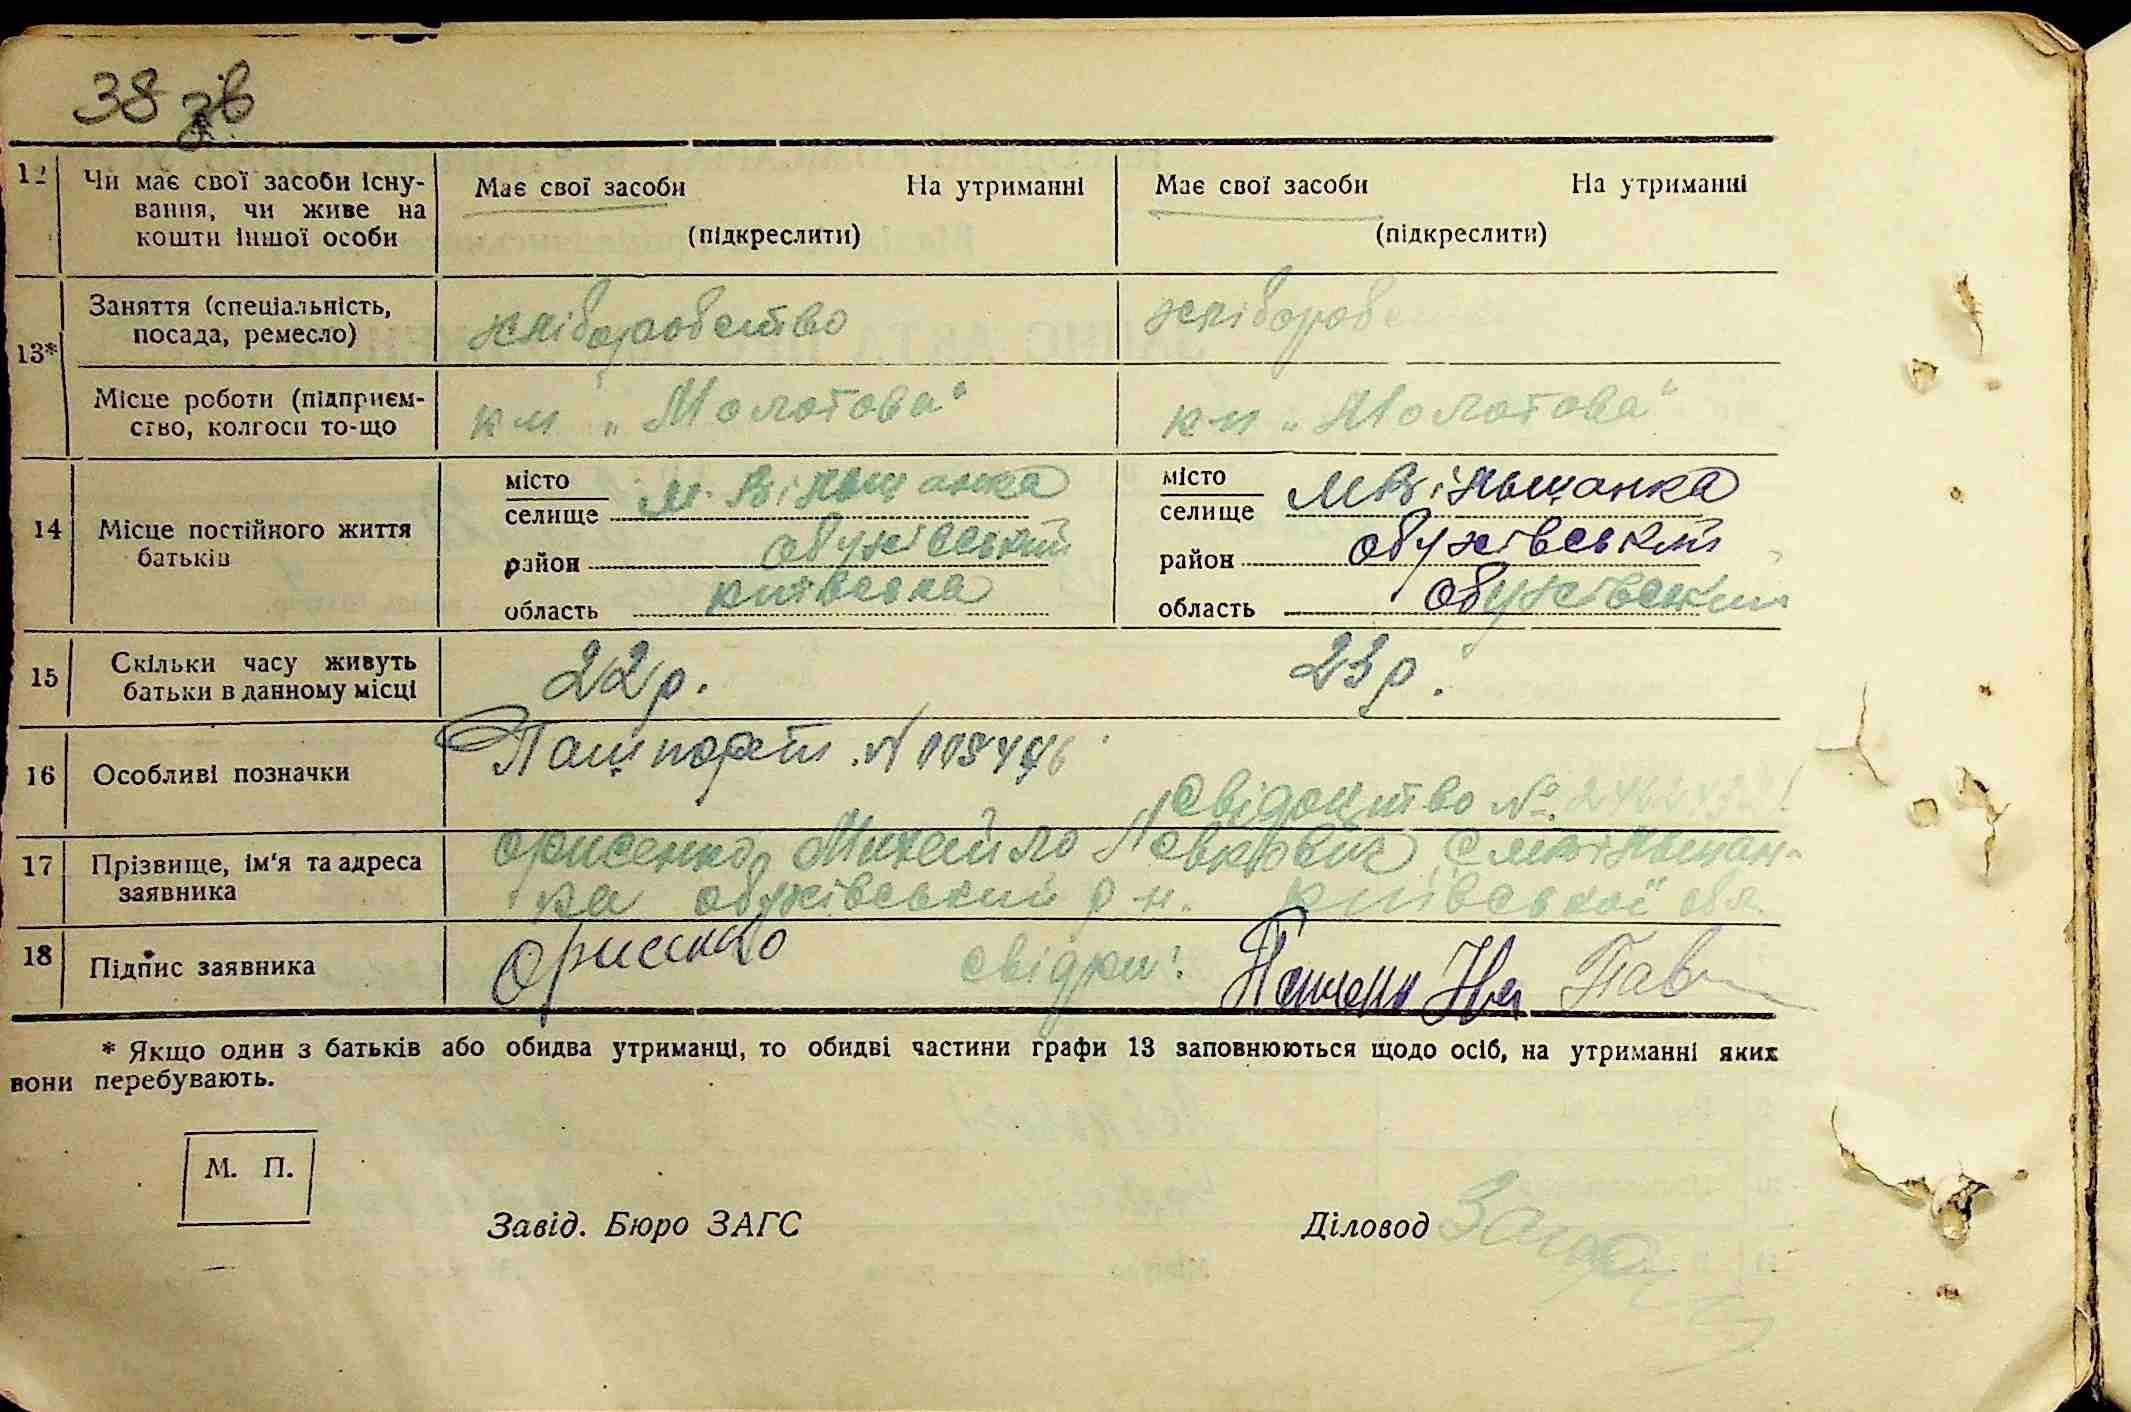 38 зв
12 Чи має свої засоби існу-
вання, чи живе на
кошти іншої особи
Має свої засоби На утриманні
(підкреслити)
Має свої засоби На утриманні
(підкреслити)
13* Заняття (спеціальність,
посада, ремесло)
хліборобство
хлібороб
Місце роботи (підприєм-
ство, колгосп то-що
кп „Молотова"
кп „Молотова"
14 Місце постійного життя
батьків
місто
селище м. Вільшанка
район обухівський
область київська
місто
селище м Вільшанка
район обухівський
область обухівський
15 Скільки часу живуть
батьки в данному місці
22 р.
23 р.
16 Особливі позначки
Пашпорт. N
Свідоцтво №
17 Прізвище, ім'я та адреса
заявника
Орисенко Михайло Левкович с мвільшан-
ка обухівський р-н. київської обл.
18 Підпис заявника
Орисенко свідки:
* Якщо один з батьків або обидва утриманці, то обидві частини графи 13 заповнюються щодо осіб, на утриманні яких
вони перебувають.
М. П.
Завід. Бюро ЗАГС
Діловод